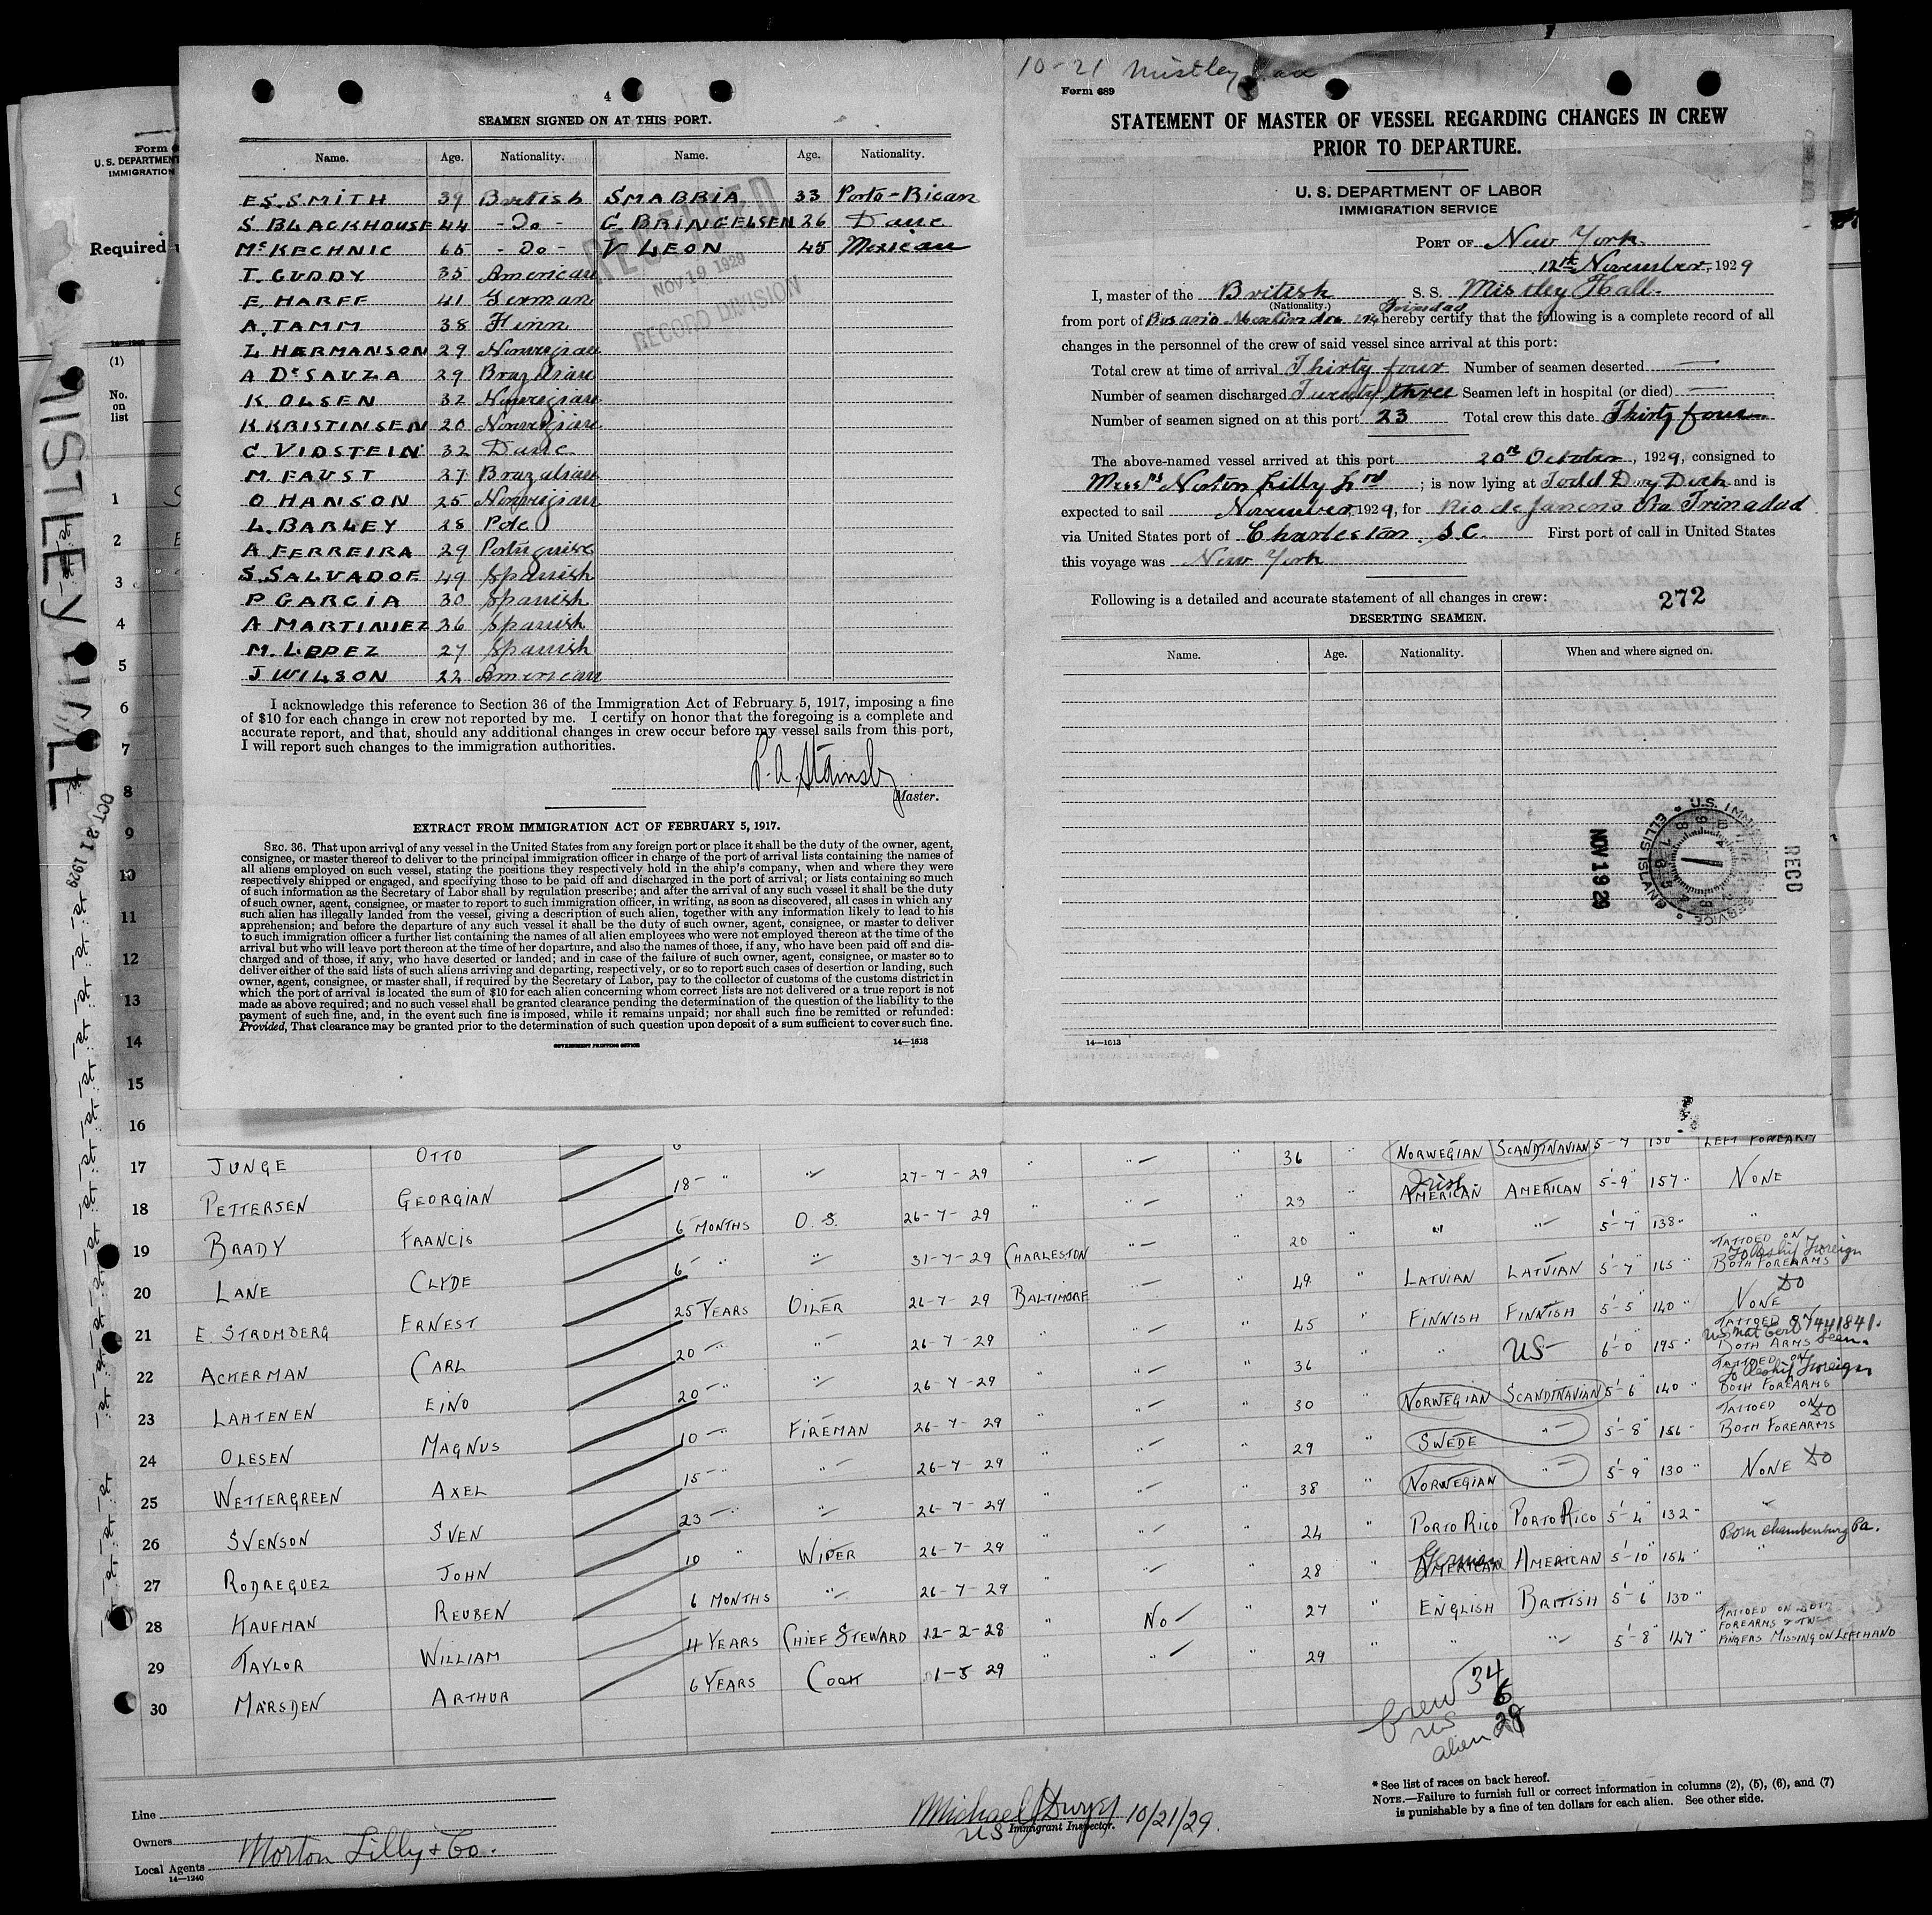 4
SEAMEN SIGNED ON AT THIS PORT.
Name. Age. Nationality. Name. Age. Nationality.
E.S. SMITH 39 British SMABRIA 33 Porto-Rican
S BLACKHOUSE 44 - Do - C BRINGELSEN 26 Dane
Mc KECHNIC 65 - Do - V LEON 45 Mexican
T. GUDDY 35 American
E. HARFF 41 German
A. TAMM 38 Finn
L HERMANSON 29 Norwegian
A De SAUZA 29 Brazalian
K. OLSEN 32 Norwegian
K KRISTINSEN 20 Norwegian
C VIDSTEIN 32 Dane
M. FAUST 27 Brazalian
O HANSON 25 Norwegian
L. BARLEY 28 Pole
A FERREIRA 29 Portuguise
S. SALVADOE 49 Spanish
P GARCIA 30 Spanish
A MARTINIEZ 36 Spanish
M. LOPEZ 27 Spanish
J WILSON 22 American
RECEIVED
NOV 19 1929
RECORD DIVISION
I acknowledge this reference to Section 36 of the Immigration Act of February 5, 1917, imposing a fine
of $10 for each change in crew not reported by me. I certify on honor that the foregoing is a complete and
accurate report, and that, should any additional changes in crew occur before my vessel sails from this port,
I will report such changes to the immigration authorities.
Stainsby
Master.
EXTRACT FROM IMMIGRATION ACT OF FEBRUARY 5, 1917.
SEC. 36. That upon arrival of any vessel in the United States from any foreign port or place it shall be the duty of the owner, agent,
consignee, or master thereof to deliver to the principal immigration officer in charge of the port of arrival lists containing the names of
all aliens employed on such vessel, stating the positions they respectively hold in the ship's company, when and where they were
respectively shipped or engaged, and specifying those to be paid off and discharged in the port of arrival; or lists containing so much
of such information as the Secretary of Labor shall by regulation prescribe; and after the arrival of any such vessel it shall be the duty
of such owner, agent, consignee, or master to report to such immigration officer, in writing, as soon as discovered, all cases in which any
such alien has illegally landed from the vessel, giving a description of such alien, together with any information likely to lead to his
apprehension; and before the departure of any such vessel it shall be the duty of such owner, agent, consignee, or master to deliver
to such immigration officer a further list containing the names of all alien employees who were not employed thereon at the time of the
arrival but who will leave port thereon at the time of her departure, and also the names of those, if any, who have been paid off and dis-
charged and of those, if any, who have deserted or landed; and in case of the failure of such owner, agent, consignee, or master so to
deliver either of the said lists of such aliens arriving and departing, respectively, or so to report such cases of desertion or landing, such
owner, agent, consignee, or master shall, if required by the Secretary of Labor, pay to the collector of customs of the customs district in
which the port of arrival is located the sum of $10 for each alien concerning whom correct lists are not delivered or a true report is not
made as above required; and no such vessel shall be granted clearance pending the determination of the question of the liability to the
payment of such fine, and, in the event such fine is imposed, while it remains unpaid; nor shall such fine be remitted or refunded:
Provided, That clearance may be granted prior to the determination of such question upon deposit of a sum sufficient to cover such fine.
GOVERNMENT PRINTING OFFICE 14—1613
10-21 Mistley
Form 689
STATEMENT OF MASTER OF VESSEL REGARDING CHANGES IN CREW
PRIOR TO DEPARTURE.
U. S. DEPARTMENT OF LABOR
IMMIGRATION SERVICE
PORT OF New York.
12th November, 1929
I, master of the British S. S. Mistley Hall.
(Nationality.) Trinidad
from port of hereby certify that the following is a complete record of all
changes in the personnel of the crew of said vessel since arrival at this port:
Total crew at time of arrival Thirty four Number of seamen deserted —
Number of seamen discharged Twenty three Seamen left in hospital (or died) —
Number of seamen signed on at this port 23 Total crew this date Thirty four
The above-named vessel arrived at this port 20th October, 1929, consigned to
Messrs Norton Lilly Ltd ; is now lying at Todd Dry Dock and is
expected to sail November, 1929, for Rio de Janeiro Via Trinadad
via United States port of Charleston S.C. First port of call in United States
this voyage was New York
Following is a detailed and accurate statement of all changes in crew: 272
DESERTING SEAMEN.
Name. Age. Nationality. When and where signed on.
RECD
U.S. IMMIGRATION SERVICE ELLIS ISLAND
NOV 19 29
14—1613
Form
U. S. DEPARTMENT
IMMIGRATION
Required
14—1240
(1)
No. on list
MISTLEY HALL
OCT 21 1929
1
2
3
4
5
6
7
8
9
10
11
12
13
14
15
16
NORWEGIAN SCANDINAVIAN 5-7 150 LEFT FOREARM
17 JUNGE OTTO 36
18 PETTERSEN GEORGIAN 18- " " 27-7-29 " " " 23 " Irish AMERICAN AMERICAN 5-9 157 NONE
19 BRADY FRANCIS 6 MONTHS O.S. 26-7-29 " " 20 " " " 5-7 138 "
20 LANE CLYDE 6 " " 31-7-29 CHARLESTON " " 49 " LATVIAN LATVIAN 5-7 165 TATTOED ON BOTH FOREARMS To Reship Foreign
21 E. STROMBERG ERNEST 25 YEARS OILER 26-7-29 BALTIMORE " " 45 " FINNISH FINNISH 5-5 140 NONE DO
22 ACKERMAN CARL 20 - " 26-7-29 " " " 36 " " US 6-0 195 TATTOED ON BOTH ARMS US Nat Cert seen.
23 LAHTENEN EINO 20 - " 26-7-29 " " " 30 " NORWEGIAN SCANDINAVIAN 5-6 140 TATTOED ON BOTH FOREARMS To Reship Foreign
24 OLESEN MAGNUS 10 - FIREMAN 26-7-29 " " " 29 " SWEDE " 5-8 156 TATTOED ON BOTH FOREARMS DO
25 WETTERGREEN AXEL 15 - " 26-7-29 " " " 38 " NORWEGIAN " 5-9 130 NONE DO
26 SVENSON SVEN 23 - " 26-7-29 " " " 24 " PORTO RICO PORTO RICO 5-4 132 "
27 RODREGUEZ JOHN 10 " WIPER 26-7-29 " " " 28 " German AMERICAN AMERICAN 5-10 154 Born Chambenburg Pa.
28 KAUFMAN REUBEN 6 MONTHS " 26-7-29 " No " 27 " ENGLISH BRITISH 5-6 130 "
29 TAYLOR WILLIAM 4 YEARS CHIEF STEWARD 12-2-28 " " " 29 " " " 5-8 147 TATTOED ON BOTH FOREARMS & TWO FINGERS MISSING ON LEFT HAND
30 MARSDEN ARTHUR 6 YEARS COOK 1-5 29
Crew 34
US 6
alien 28
Line
Owners
Local Agents Norton Lilly & Co.
14—1240
Michael J Dwyer 10/21/29.
US Immigrant Inspector.
* See list of races on back hereof.
NOTE.—Failure to furnish full or correct information in columns (2), (5), (6), and (7)
is punishable by a fine of ten dollars for each alien. See other side.